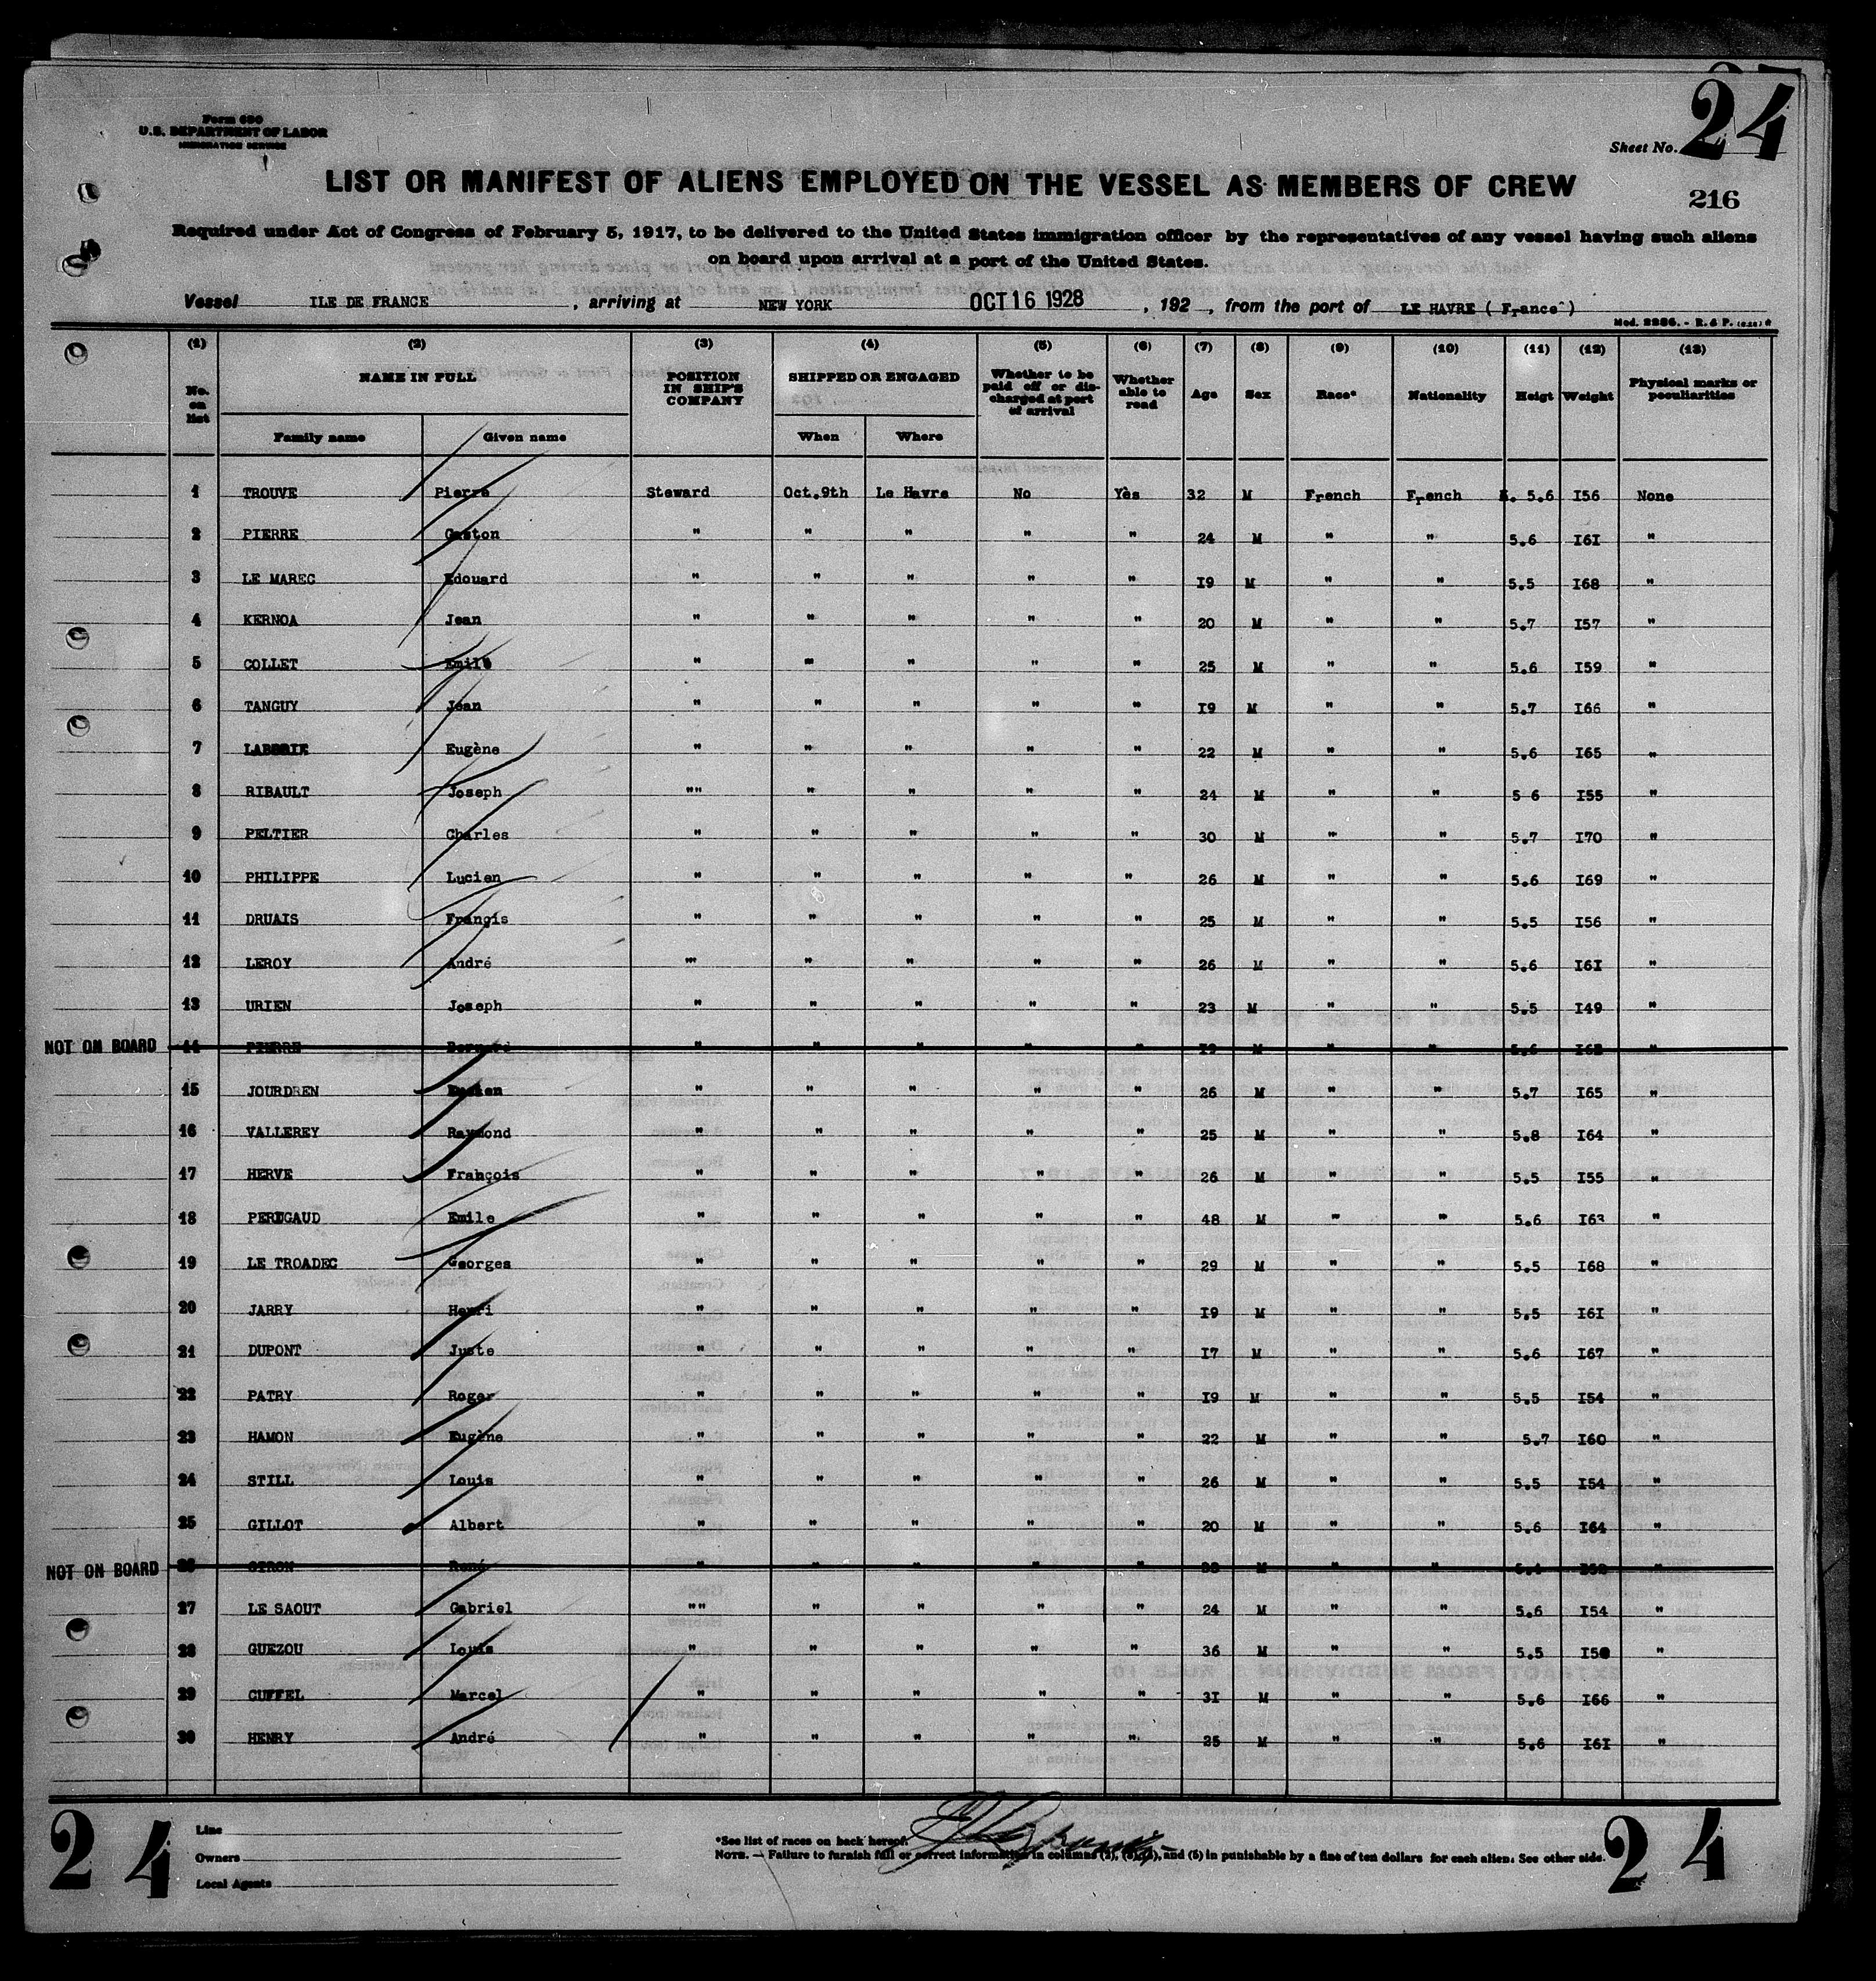 24
Form 680
U.S. DEPARTMENT OF LABOR
IMMIGRATION SERVICE
Sheet No.
LIST OR MANIFEST OF ALIENS EMPLOYED ON THE VESSEL AS MEMBERS OF CREW
216
Required under Act of Congress of February 5, 1917, to be delivered to the United States immigration officer by the representatives of any vessel having such aliens
on board upon arrival at a port of the United States.
Vessel ILE DE FRANCE , arriving at NEW YORK OCT 16 1928 , 192 , from the port of LE HAVRE ( France )
Mod. 2286. - R. & P.
(1) (2) (3) (4) (5) (6) (7) (8) (9) (10) (11) (12) (13)
No. on list NAME IN FULL POSITION IN SHIP'S COMPANY SHIPPED OR ENGAGED Whether to be paid off or discharged at port of arrival Whether able to read Age Sex Race* Nationality Heigt Weight Physical marks or peculiarities
Family name Given name When Where
1 TROUVE Pierre Steward Oct.9th Le Havre No Yes 32 M French French 5.6 I56 None
2 PIERRE Gaston " " " " " 24 M " " 5.6 I6I "
3 LE MAREC Edouard " " " " " I9 M " " 5.5 I68 "
4 KERNOA Jean " " " " " 20 M " " 5.7 I57 "
5 COLLET Emile " " " " " 25 M " " 5.6 I59 "
6 TANGUY Jean " " " " " I9 M " " 5.7 I66 "
7 LABORIE Eugène " " " " " 22 M " " 5.6 I65 "
8 RIBAULT Joseph "" " " " " 24 M " " 5 6 I55 "
9 PELTIER Charles " " " " " 30 M " " 5.7 I70 "
10 PHILIPPE Lucien " " " " " 26 M " " 5.6 I69 "
11 DRUAIS Françis " " " " " 25 M " " 5.5 I56 "
12 LEROY André " " " " " 26 M " " 5.6 I6I "
13 URIEN Joseph " " " " " 23 M " " 5.5 I49 "
NOT ON BOARD 14 PIERRE Bernard " " " " " I9 M " " 5.6 "
15 JOURDREN " " " " " 26 M " " 5.7 I65 "
16 VALLEREY Raymond " " " " " 25 M " " 5.8 I64 "
17 HERVE François " " " " " 26 M " " 5.5 I55 "
18 PERUGAUD Emile " " " " " 48 M " " 5.6 I63 "
19 LE TROADEC Georges " " " " " 29 M " " 5.5 I68 "
20 JARRY Henri " " " " " I9 M " " 5.5 I6I "
21 DUPONT Juste " " " " " I7 M " " 5.6 I67 "
22 PATRY Roger " " " " " I9 M " " 5.5 I54 "
23 HAMON Eugène " " " " " 22 M " " 5.7 I60 "
24 STILL Louis " " " " " 26 M " " 5.5 I54 "
25 GILLOT Albert " " " " " 20 M " " 5.6 I64 "
NOT ON BOARD 26 GIRON René " " " " " M " " "
27 LE SAOUT Gabriel "" " " " " 24 M " " 5.6 I54 "
28 GUEZOU Louis " " " " " 36 M " " 5.5 I50 "
29 CUFFEL Marcel " " " " " 3I M " " 5.6 I66 "
30 HENRY André " " " " " 25 M " " 5.6 I6I "
24
Line
Owners
Local Agents
*See list of races on back hereof.
NOTE. — Failure to furnish full or correct information in columns (2), (3), (4), and (5) in punishable by a fine of ten dollars for each alien. See other side.
24